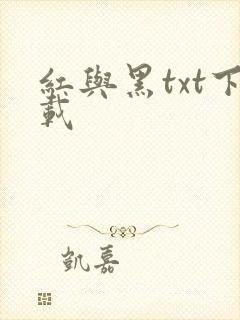 紅與黑txt下
載
凱嘉